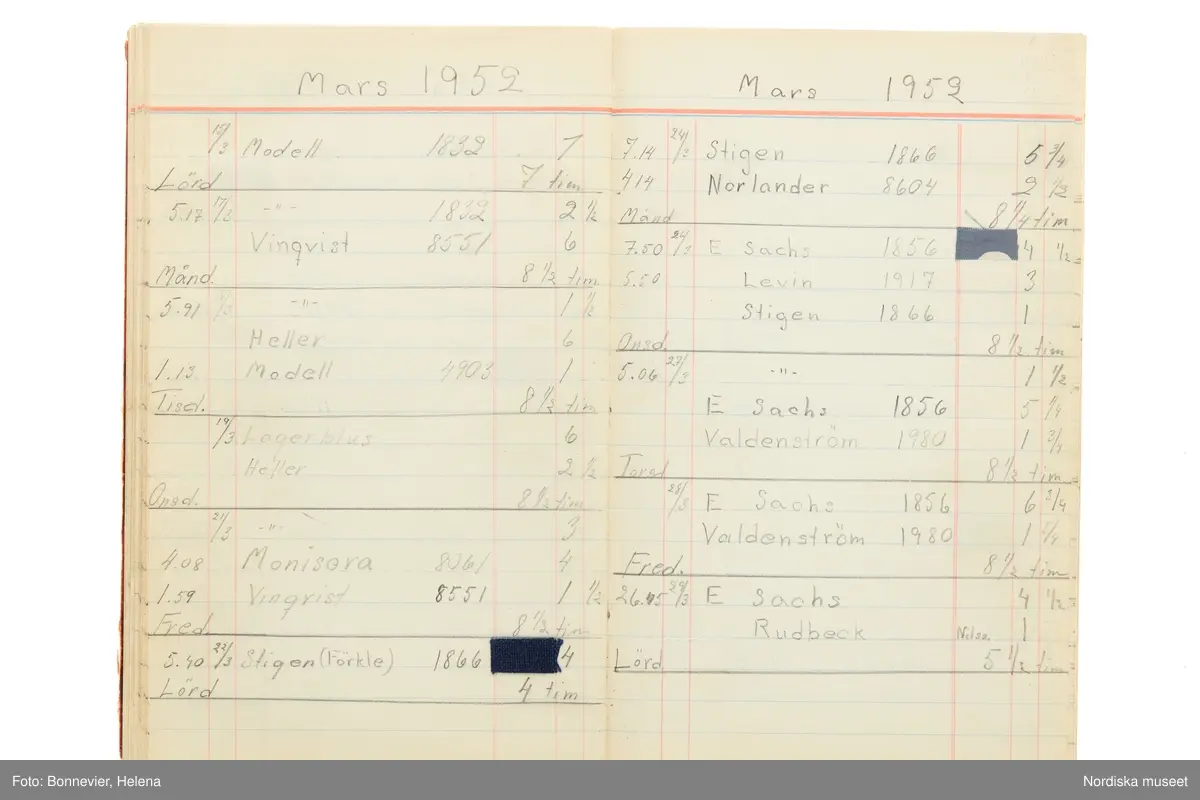 Mars 1952
15/3 Modell 1832 7
Lörd 7 tim
5.17 17/3 -"- 1832 2 1/2
Vinqvist 8551 6
Månd. 8 1/2 tim
5.91 -"- 1 1/2
Heller 6
1.13 Modell 4903 1
Tisd. 8 1/2 tim
19/3 Lagerblus 6
Heller 2 1/2
Onsd. 8 1/2 tim
21/3 -"- 3
4.08 Monisora 8361 4
1.59 Vinqvist 8551 1 1/2
Fred. 8 1/2 tim
5.40 22/3 Stigen (Förkle) 1866 4
Lörd 4 tim
Mars 1952
7.14 24/3 Stigen 1866 5 3/4
414 Norlander 8604 2 1/2
Månd 8 1/4 tim
7.50 E Sachs 1856 4 1/2
5.50 Levin 1917 3
Stigen 1866 1
Onsd. 8 1/2 tim
5.06 27/3 -"- 1 1/2
E Sachs 1856 5 1/4
Valdenström 1980 1 3/4
Torsd 8 1/2 tim
28/3 E Sachs 1856 6 3/4
Valdenström 1980 1
Fred. 8 1/2 tim
26.45 29/3 E Sachs 4 1/2
Rudbeck 1
Lörd 5 1/2 tim
Foto: Bonnevier, Helena
Nordiska museet